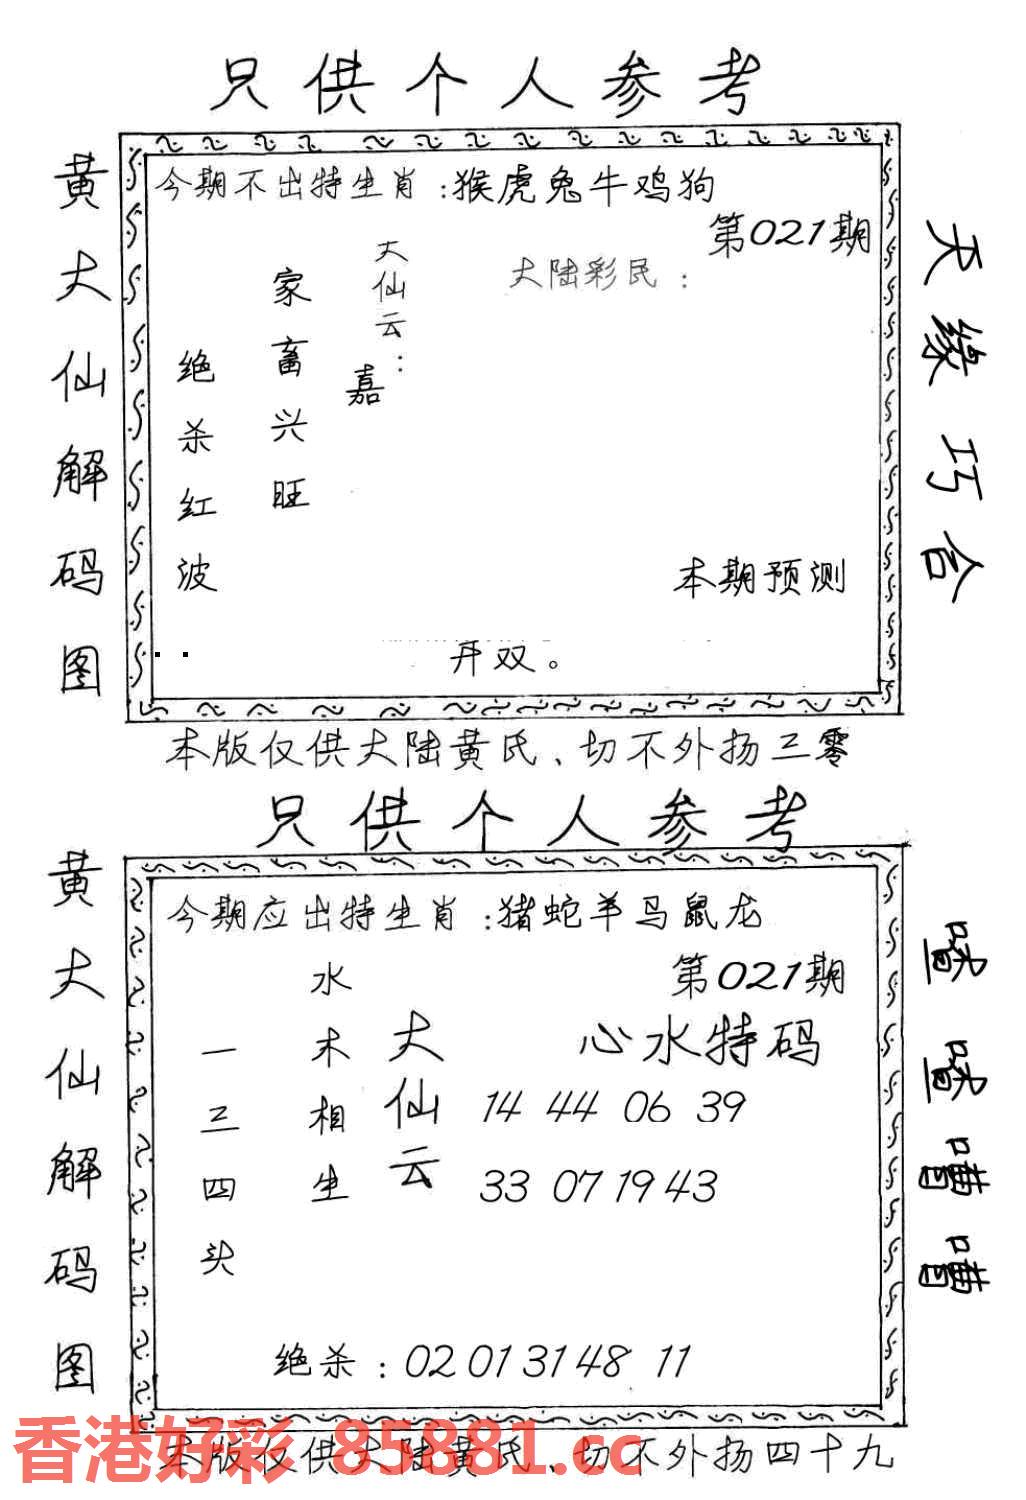 只供个人参考
黄大仙解码图
今期不出特生肖:猴虎兔牛鸡狗
第021期
大仙云:
大陆彩民:
嘉
家畜兴旺
绝杀红波
本期预测
开双。
天缘巧合
本版仅供大陆黄氏、切不外扬三零
只供个人参考
黄大仙解码图
今期应出特生肖:猪蛇羊马鼠龙
第021期
心水特码
水木相生
大仙云
14 44 06 39
33 07 19 43
一三四头
绝杀:02 01 31 48 11
香港好彩 85881.cc
本版仅供大陆黄氏、切不外扬四十九